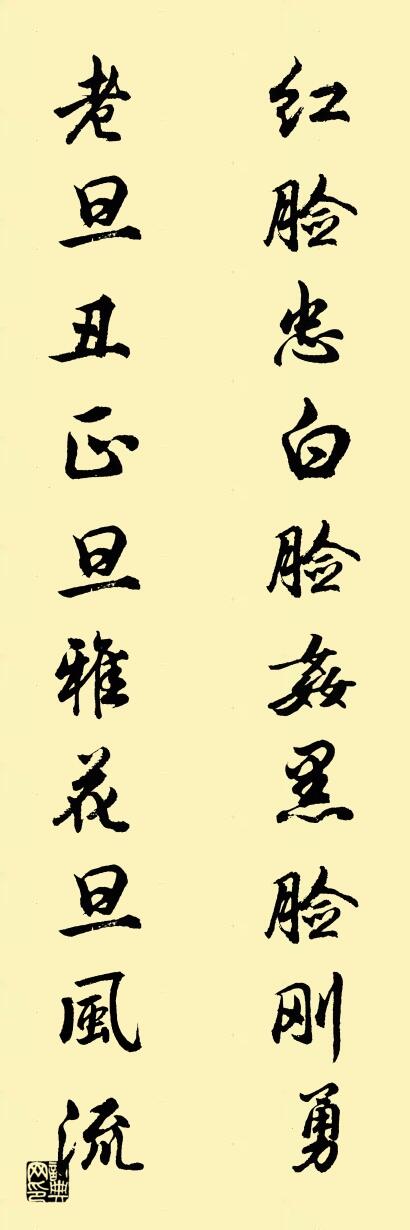 红脸忠白脸姦黑脸刚勇
老旦丑正旦雅花旦風流